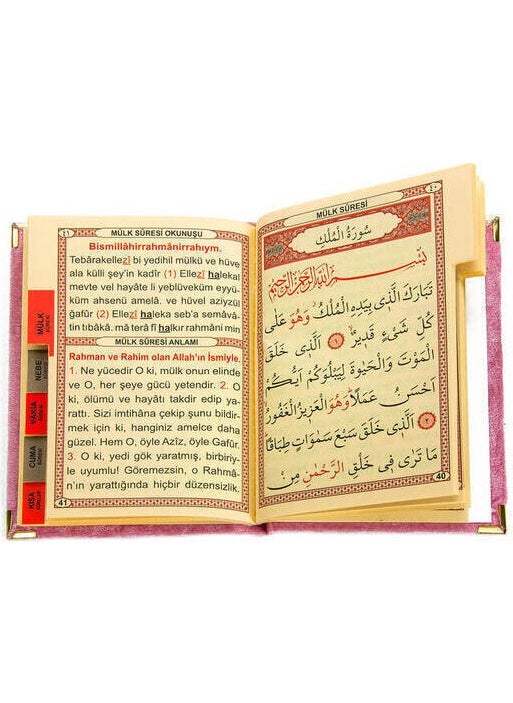 ٤١
MÜLK SÛRESİ OKUNUŞU
Bismillâhirrahmânirrahıym.
Tebârakellezî bi yedihil mülkü ve hüve
ala külli şey'in kadîr (1) Ellezî halekal
mevte vel hayâte li yeblüveküm eyyü
küm ahsenü amelâ. ve hüvel aziyzül
ğafûr (2) Ellezî haleka seb'a semâvâ
tin tıbâkâ. mâ terâ fî halkır rahmâni min
MÜLK SÛRESİ ANLAMI
Rahman ve Rahim olan Allah'ın İsmiyle.
1. Ne yücedir O ki, mülk onun elinde
ve O, her şeye gücü yetendir. 2. O
ki, ölümü ve hayatı takdir edip yarattı.
rattı. Sizi imtihana çekip şunu bildirmek
mek için ki, hanginiz amelce daha
güzel. Hem O, öyle Azîz, öyle Gafûr.
3. O ki, yedi gök yaratmış, birbiriy-
le uyumlu! Göremezsin, o Rahmâ-
n'ın yarattığında hiçbir düzensizlik.
41
MÜLK SÛRESİ
NEBE
VÂKIA
CUMA
KISA SÛRELER
٤٠
MÜLK SÛRESİ
سُورَةُ الْمُلْكِ
بِسْمِ اللّٰهِ الرَّحْمٰنِ الرَّحِيمِ
تَبَارَكَ الَّذ۪ي بِيَدِهِ الْمُلْكُ وَهُوَ عَلٰى
كُلِّ شَيْءٍ قَد۪يرٌ ١ اَلَّذ۪ي خَلَقَ
الْمَوْتَ وَالْحَيٰوةَ لِيَبْلُوَكُمْ اَيُّكُمْ
اَحْسَنُ عَمَلًا وَهُوَ الْعَز۪يزُ الْغَفُورُ
٢ اَلَّذ۪ي خَلَقَ سَبْعَ سَمٰوَاتٍ طِبَاقًا
مَا تَرٰى ف۪ي خَلْقِ الرَّحْمٰنِ مِنْ
40